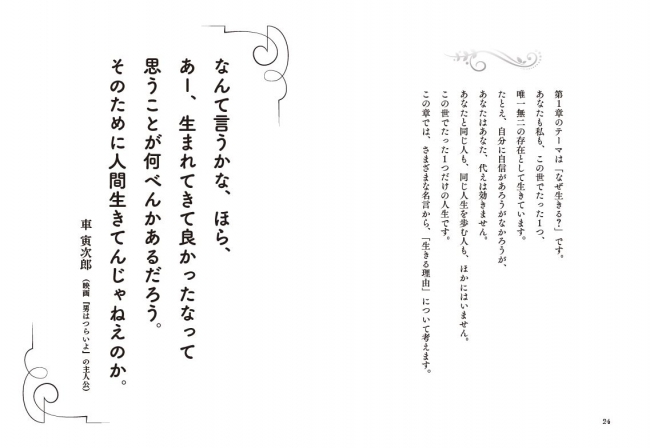 第1章のテーマは「なぜ生きる？」です。
あなたも私も、この世でたった1つ、
唯一無二の存在として生きています。
たとえ、自分に自信があろうがなかろうが、
あなたはあなた、代えは効きません。
あなたと同じ人も、同じ人生を歩む人も、ほかにはいません。
この世でたった1つだけの人生です。
この章では、さまざまな名言から、「生きる理由」について考えます。
24
なんて言うかな、ほら、
あー、生まれてきて良かったなって
思うことが何べんかあるだろう。
そのために人間生きてんじゃねえのか。
車 寅次郎（映画『男はつらいよ』の主人公）